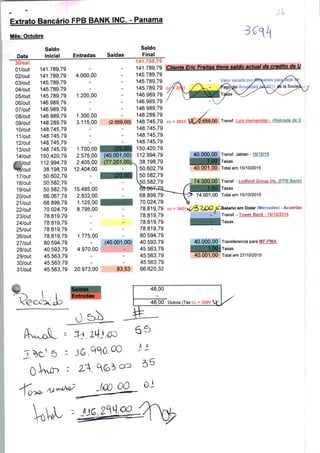 16
Extrato Bancário FPB BANK INC. - Panama
3694
Mês: Outubro
Data Saldo Inicial Entradas Saídas Saldo Final
30/set 141.789,79
01/out 141.789,79 - - 141.789,79 Cliente Eric Freitas tiene saldo actual de credito de U
02/out 141.789,79 4.000,00 - 145.789,79
03/out 145.789,79 - - 145.789,79
04/out 145.789,79 - - 145.789,79
05/out 145.789,79 1.200,00 - 146.989,79 Taxas
06/out 146.989,79 - - 146.989,79
07/out 146.989,79 - - 146.989,79
08/out 146.989,79 1.300,00 - 148.289,79
09/out 148.289,79 3.115,00 (2.659,00) 148.745,79 cc = 3693 2.659,00 Transf. Luis Hernandez - (Retirada de S
10/out 148.745,79 - - 148.745,79
11/out 148.745,79 - - 148.745,79
12/out 148.745,79 - - 148.745,79
13/out 148.745,79 1.700,00 150.420,79
14/out 150.420,79 2.575,00 (40.001,00) 112.994,79 40.000,00 Transf. Jablen - 15/10/15
112.994,79 2.405,00 (77.201,00) 38.198,79 1,00 Taxas
38.198,79 12.404,00 - 50.602,79 40.001,00 Total em 15/10/2015
17/out 50.602,79 50.582,79
18/out 50.582,79 - - 50.582,79 74.000,00 Transf - Ledford Group Inc. (FPB Bank)
19/out 50.582,79 15.485,00 - 66.067,79 1,00 Taxas
20/out 66.067,79 2.832,00 - 68.899,79 74.001,00 Total em 15/10/2015
21/out 68.899,79 1.125,00 - 70.024,79
22/out 70.024,79 8.795,00 - 78.819,79 Salario em Dolar (Mercedes) - Acuerdas
23/out 78.819,79 - - 78.819,79 Transf. - Tower Bank - 15/10/2015
24/out 78.819,79 - - 78.819,79 Taxas
25/out 78.819,79 - - 78.819,79
26/out 78.819,79 1.775,00 - 80.594,79
27/out 80.594,79 - (40.001,00) 40.593,79 40.000,00 Transferencia para MF-PMA.
28/out 40.593,79 4.970,00 - 45.563,79 1,00 Taxas
29/out 45.563,79 - - 45.563,79 40.001,00 Total em 27/10/2015
30/out 45.563,79 - - 45.563,79
31/out 45.563,79 20.973,00 83,53 66.620,32
Saídas - 48,00
Entradas -
48,00 Outros (Tax cc = 3699
Recado
USD #
Anual = 71.241.00 55
IBC's = 16.990.00 11
Otros = 27.963.00 35
100.00 01
total = 116.294.00